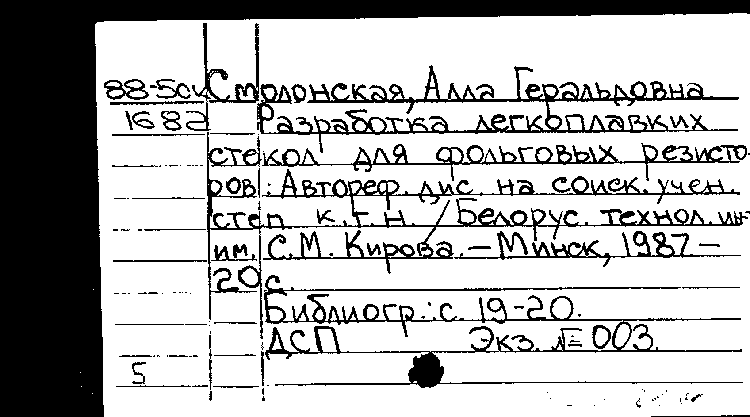 88-5оч Столонская, Алла Геральдовна
1682 Разработка легкоплавких
стекол для фольговых резисто-
ров: Автореф. дис. на соиск. учен.
степ к.т.н. / Белорус. технол. ин-
им. С.М. Кирова. – Минск, 1987 –
20 с.
Библиогр.: с. 19-20.
ДСП Экз. № 003.
5